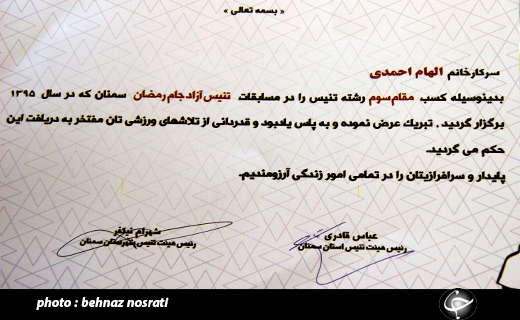 « بسمه تعالی »
سرکار خانم الهام احمدی
بدینوسیله کسب مقام سوم رشته تنیس را در مسابقات تنیس آزاد جام رمضان سمنان که در سال ۱۳۹۵
برگزار گردید . تبریک عرض نموده و به پاس یادبود و قدردانی از تلاشهای ورزشی تان مفتخر به دریافت این
حکم می گردید.
پایدار و سرافرازیتان را در تمامی امور زندگی آرزومندیم.
عباس قادری
رئیس هیئت تنیس استان سمنان
شهرام نیکفر
رئیس هیئت تنیس شهرستان سمنان
photo : behnaz nosrati